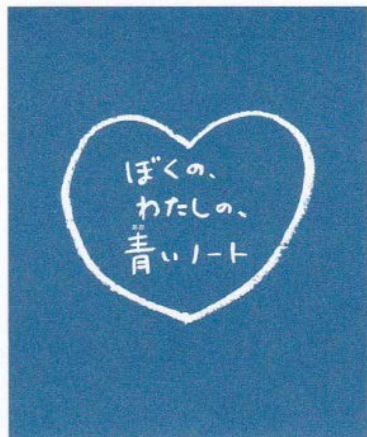 ぼくの、
わたしの、
青いノート